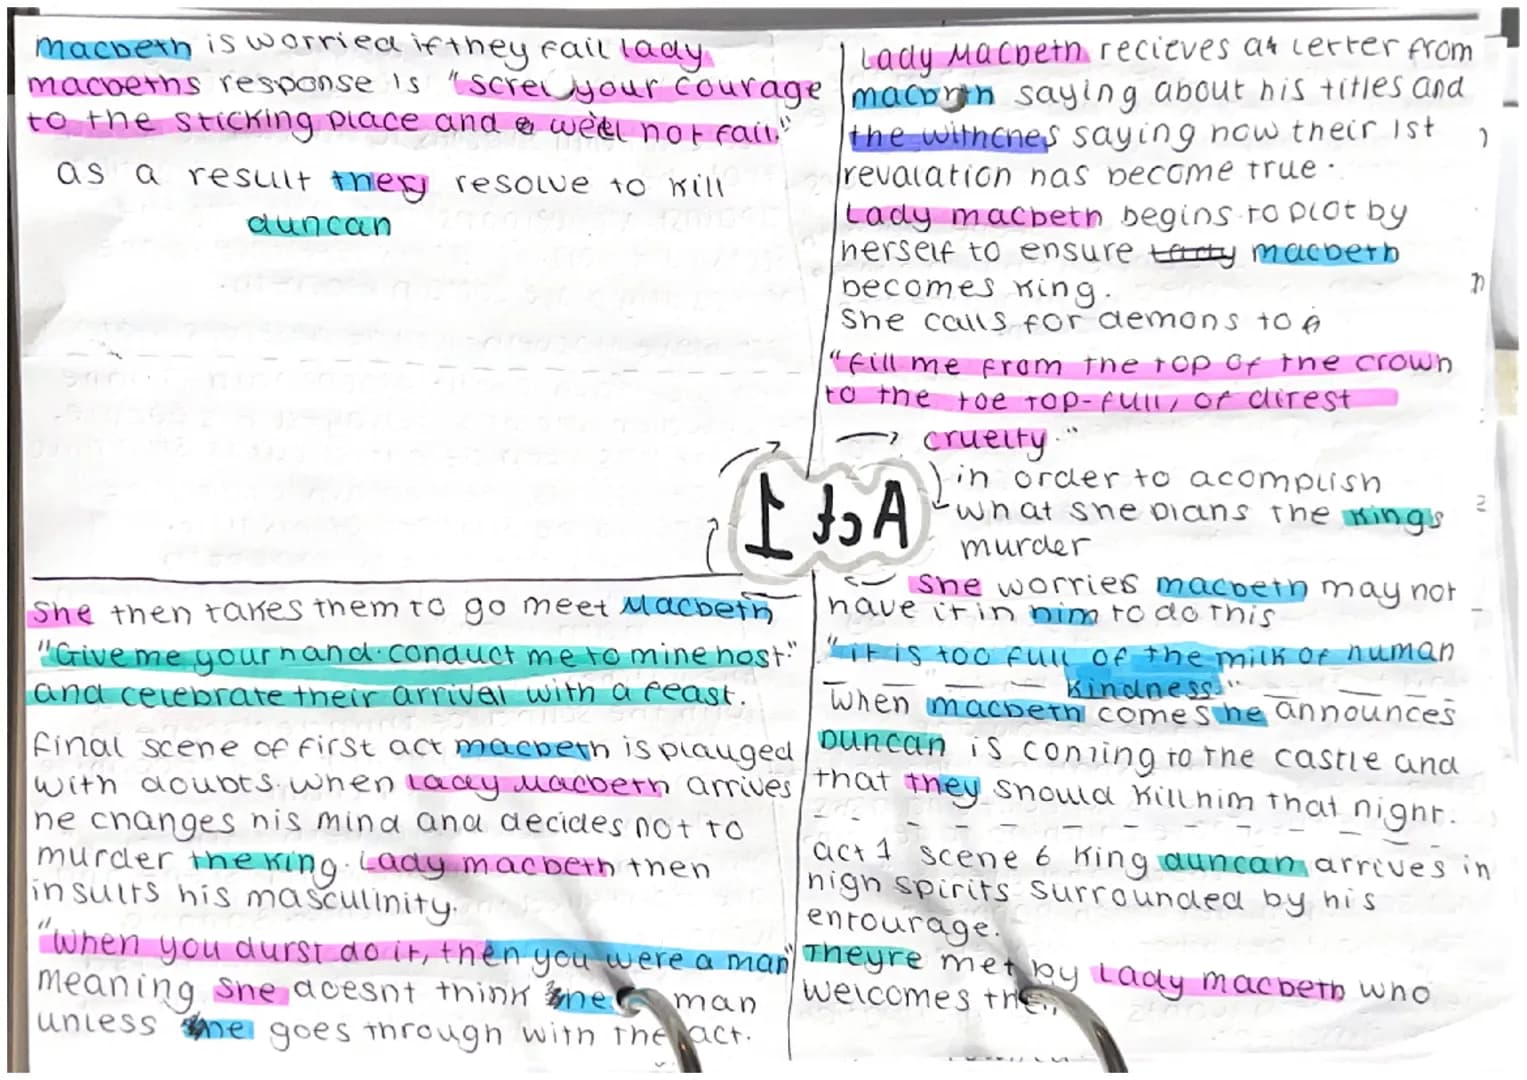 macbeth is worried if they fail lady
macbeths response is "screw your courage
to the sticking place and we'll not fail."
as a result they resolve to kill
duncan
Act 1
she then takes them to go meet Macbeth
"Give me your hand. conduct me to mine host."
and celebrate their arrival with a feast.
final scene of first act macbeth is plauged
with doubts. when Lady Macbeth arrives
he changes his mind and decides not to
murder the king. Lady macbeth then
insults his masculinity.
"when you durst do it, then you were a man"
meaning she doesnt think he man
unless he goes through with the act.
Lady Macbeth recieves a letter from
macbeth saying about his titles and
the withches saying how their 1st
revalation has become true.
Lady macbeth begins to plot by
herself to ensure macbeth
becomes king.
She calls for demons to
"fill me from the top of the crown
to the toe top-full, of direst
→ cruelty."
in order to acomplish
what she plans the kings
murder
she worries macbeth may not
have it in him to do this
"it is too full of the milk of human
kindness."
when macbeth comes he announces
Duncan is coming to the castle and
that they should kill him that night.
act 1 scene 6 king duncan arrives in
high spirits surrounded by his
entourage.
Theyre met by Lady macbeth who
welcomes